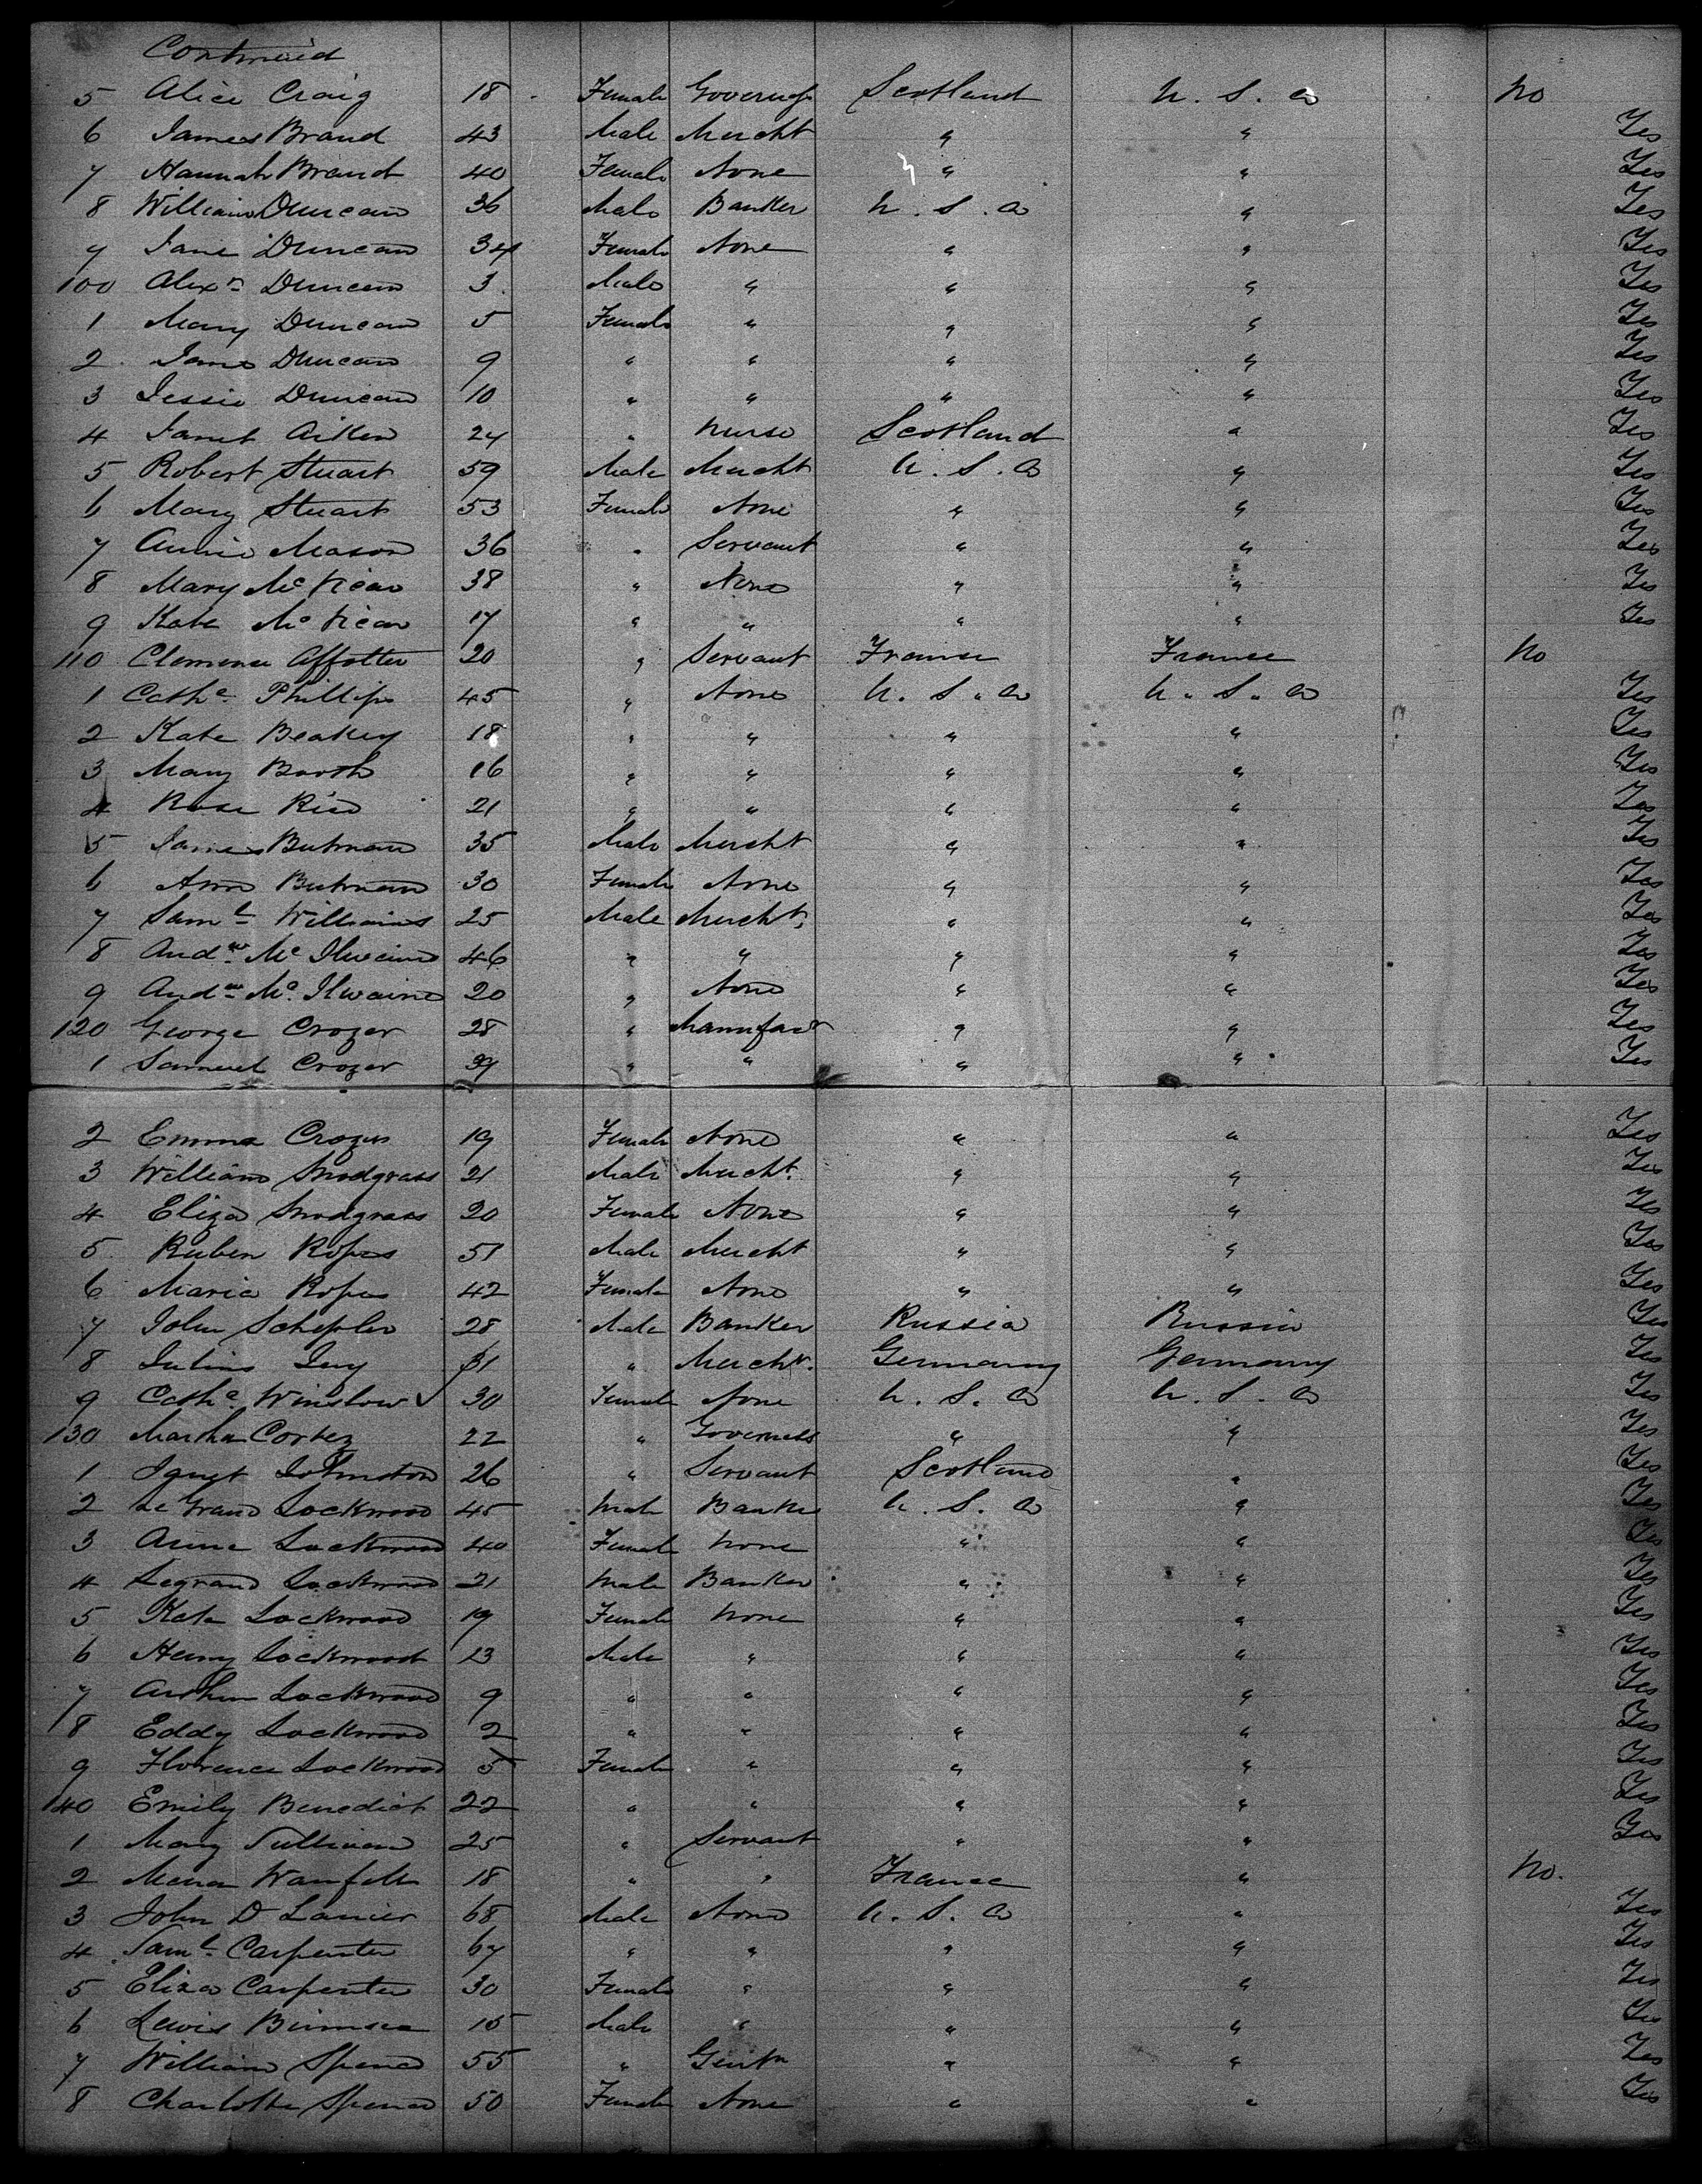 Continued
5 Alice Craig 18 Female Governess Scotland U. S. a No
6 James Brand 43 Male Mercht " " Yes
7 Hannah Brand 40 Female None " " Yes
8 William Duncan 36 Male Banker U. S. a " Yes
9 Jane Duncan 34 Female None " " Yes
100 Alexr Duncan 3 Male " " " Yes
1 Mary Duncan 5 Female " " " Yes
2 Jane Duncan 9 " " " " Yes
3 Jessie Duncan 10 " " " " Yes
4 Janet Aitken 24 " Nurse Scotland " Yes
5 Robert Stuart 59 Male Mercht U. S. a " Yes
6 Mary Stuart 53 Female None " " Yes
7 Annie Mason 36 " Servant " " Yes
8 Mary McVicar 38 " None " " Yes
9 Kate McVicar 17 " " " " Yes
110 Clemence Affolter 20 " Servant France France No
1 Cathe Phillips 45 " None U. S. a U. S. a Yes
2 Kate Beakey 18 " " " " Yes
3 Mary Booth 16 " " " " Yes
4 Rose Rice 21 " " " " Yes
5 James Butman 35 Male Mercht " " Yes
6 Ann Butman 30 Female None " " Yes
7 Saml Williams 25 Male Mercht. " " Yes
8 Andw McIlwaine 46 " " " " Yes
9 Andw McIlwaine 20 " None " " Yes
120 George Crozer 28 " Manufacr " " Yes
1 Samuel Crozer 39 " " " " Yes
2 Emma Crozer 19 Female None " " Yes
3 William Snodgrass 21 Male Mercht. " " Yes
4 Eliza Snodgrass 20 Female None " " Yes
5 Ruben Ropes 51 Male Mercht " " Yes
6 Maria Ropes 42 Female None " " Yes
7 John Schepler 28 Male Banker Russia Russia Yes
8 Julius 31 " Mercht. Germany Germany Yes
9 Cathe Winslow 30 Female None U. S. a U. S. a Yes
130 Martha Cortez 22 " Governess " " Yes
1 Janet Johnston 26 " Servant Scotland " Yes
2 Le Grand Lockwood 45 Male Banker U. S. a " Yes
3 Anne Lockwood 40 Female None " " Yes
4 Legrand Lockwood 21 Male Banker " " Yes
5 Kate Lockwood 19 Female None " " Yes
6 Henry Lockwood 13 Male " " " Yes
7 Arthur Lockwood 9 " " " " Yes
8 Eddy Lockwood 2 " " " " Yes
9 Florence Lockwood 5 Female " " " Yes
140 Emily Benedict 22 " " " " Yes
1 Mary Sullivan 25 " Servant " " Yes
2 18 " " France " No.
3 John D Lanier 68 Male None U. S. a " Yes
4 Saml Carpenter 67 " " " " Yes
5 Eliza Carpenter 30 Female " " " Yes
6 Lewis 15 Male " " " Yes
7 William Spence 55 " Gentn " " Yes
8 Charlotte Spence 50 Female None " " Yes